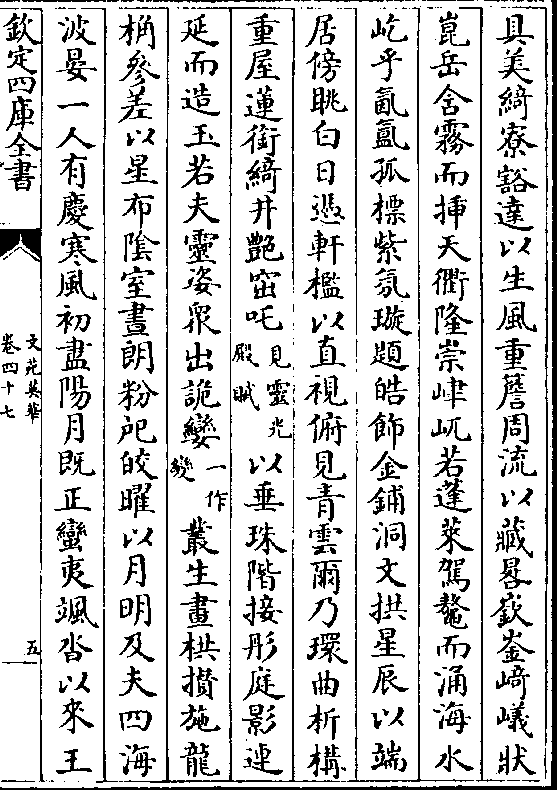 具美綺寮豁達以生風重簷周流以藏晷嶔崟﨑嶬狀
崑岳含霧而揷天衢隆崇嵂屼若蓬萊駕鼇而涌海水
屹乎氤氲孤標紫氛璇題皓飾金鋪洞文拱星辰以端
居傍眺白日憑軒檻以直視俯見青雲爾乃環曲析構
重屋蓮銜綺井艶窋咤見靈光殿賦以垂珠階接彤庭影連
延而造玉若夫靈姿衆出詭孌一作變叢生畫栱攢施龍
桷參差以星布陰室晝朗粉戺皎曜以月明及夫四海
波晏一人有慶寒風初盡陽月既正蠻夷颯沓以來王
欽定四庫全書
文苑英華
卷四十七
五